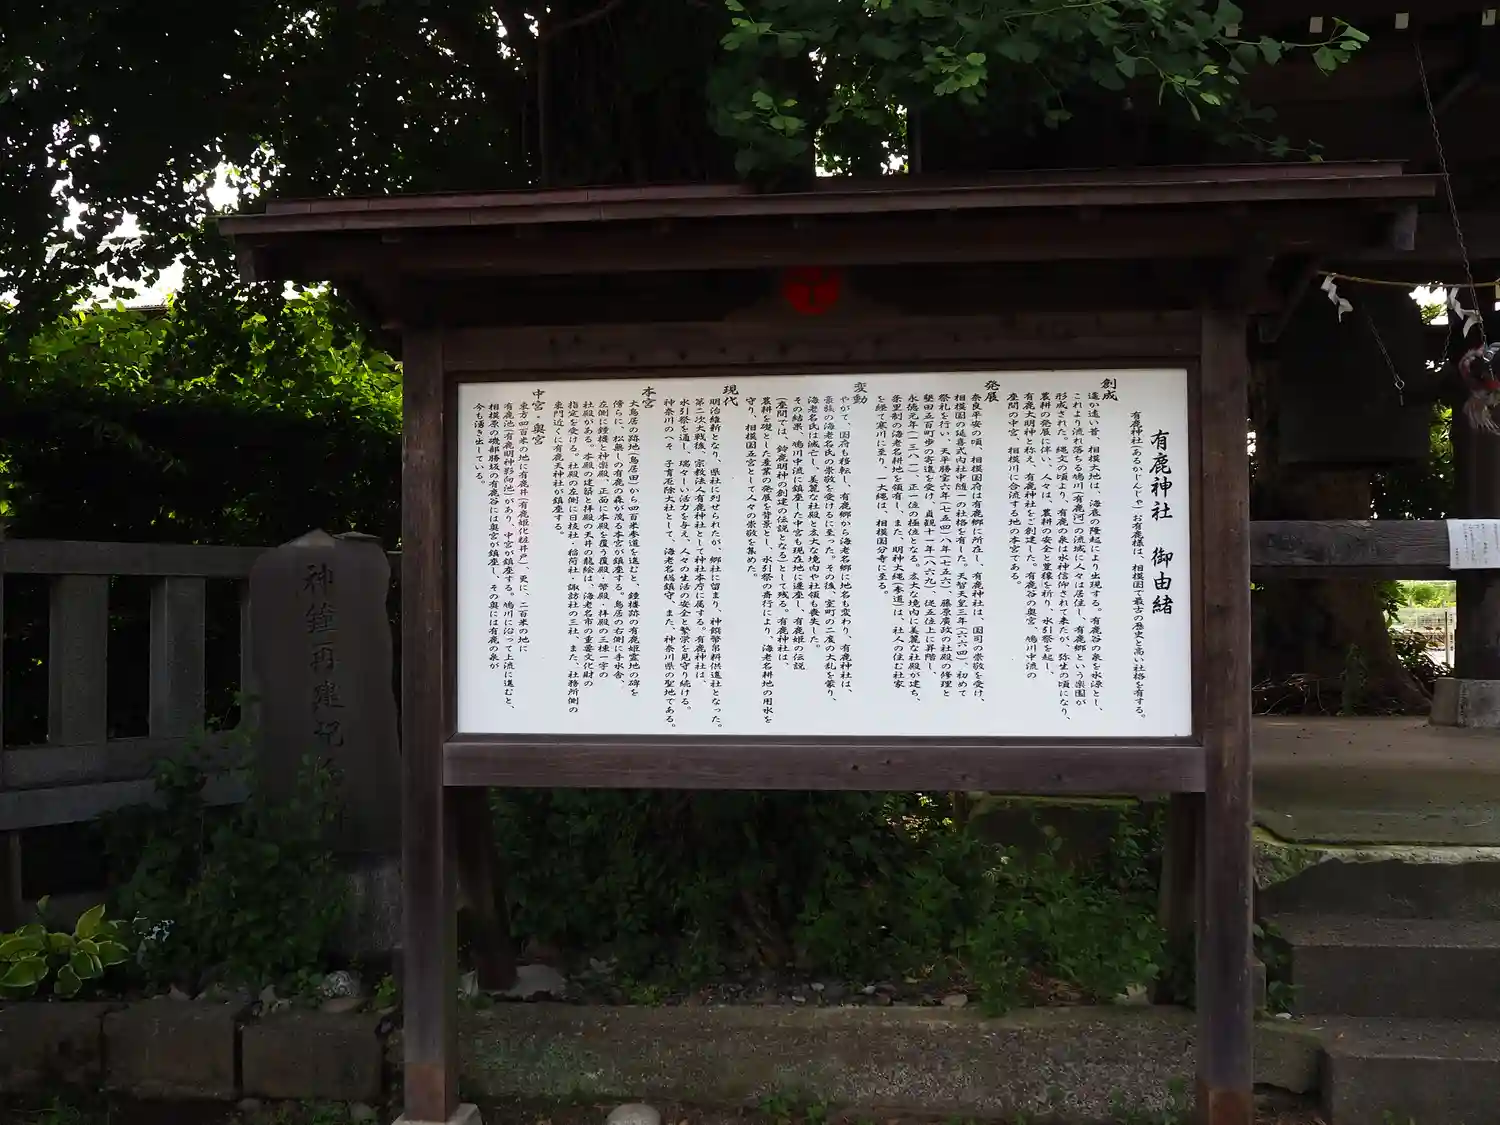 有鹿神社 御由緒
有鹿神社(あるかじんじゃ)お有鹿様は、相模国で最古の歴史と高い社格を有する。
創成
遙か遠い昔、相模大地は、海底の隆起により出現する。有鹿谷の泉を水源とし、
これより流れ落ちる鳩川(有鹿河)の流域に人々は居住し、有鹿郷という楽園が
形成された。縄文の頃より、有鹿の泉は水神信仰されて来たが、弥生の頃になり、
農耕の発展に伴い、人々は、農耕の安全と豊穣を祈り、水引祭を起し、
有鹿大明神と称え、有鹿神社をご創建した。有鹿谷の奥宮、鳩川中流の
座間の中宮、相模川に合流する地の本宮である。
発展
奈良平安の頃、相模国府は有鹿郷に所在し、有鹿神社は、国司の崇敬を受け、
相模国の延喜式内社中随一の社格を有した。天智天皇三年(六六四)、初めて
祭礼を行い、天平勝宝六年(七五四)八年(七五六)、藤原廣政の社殿の修理と
墾田五百町歩の寄進を受け、貞観十一年(八六九)、従五位上に昇階し、
永徳元年(一三八一)、正一位の極位となる。広大な境内に美麗な社殿が建ち、
条里制の海老名耕地を領有し、また、明神大縄(参道)は、社人の住む社家
を経て寒川に至り、一大縄は、相模国分寺に至る。
変動
やがて、国府も移転し、有鹿郷から海老名郷に地名も変わり、有鹿神社は、
豪族の海老名氏の崇敬を受けるに至った。その後、室町の二度の大乱を蒙り、
海老名氏は滅亡し、美麗な社殿と広大な境内や社領も喪失した。
その結果、鳩川中流に鎮座した中宮も現在地に遷座し、有鹿姫の伝説
(座間では、鈴鹿明神の創建の伝説となる)として残る。有鹿神社は、
農耕を礎とした産業の発展を背景とし、水引祭の斎行により、海老名耕地の用水を
守り、相模国五宮として人々の崇敬を集めた。
現代
明治維新となり、県社に列せられたが、郷社に留まり、神饌幣帛料供進社となった。
第二次大戦後、宗教法人有鹿神社として神社本庁に属する。有鹿神社は、
水引祭を通し、瑞々しい活力を与え、人々の生活の安全と繁栄を見守り続ける。
神奈川のへそ 子育厄除大社として、海老名総鎮守、また、神奈川県の聖地である。
本宮
大鳥居の路地(鳥居田)から四百米参道を進むと、鐘楼跡の有鹿姫霊地の碑を
傍らに、松無しの有鹿の森が茂る本宮が鎮座する。鳥居の右側に手水舎、
左側に鐘楼と神楽殿、正面に本殿を覆う覆殿・幣殿・拝殿の三棟一宇の
社殿がある。本殿の建築と拝殿の天井の龍絵は、海老名市の重要文化財の
指定を受ける。社殿の左側に日枝社・稲荷社・諏訪社の三社、また、社務所側の
東門近くに有鹿天神社が鎮座する。
中宮・奥宮
東方四百米の地に有鹿井(有鹿姫化粧井戸)、更に、二百米の地に
有鹿池(有鹿明神影向池)があり、中宮が鎮座する。鳩川に沿って上流に進むと、
相模原の磯部勝坂の有鹿谷には奥宮が鎮座し、その奥には有鹿の泉が
今も湧き出している。
神鐘再建記